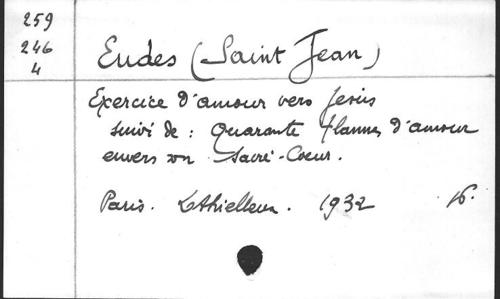 259
246
4
Eudes (Saint Jean)
Exercice d'amour vers Jésus
suivi de : Quarante flammes d'amour
envers son Sacré-Coeur.
Paris. Lethielleux. 1932 16.